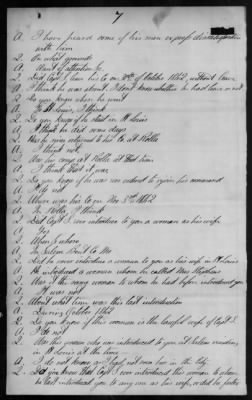 7
A. I have heard some of his men express dissatisfaction
with him
2. On what grounds
A. Want of attention &c
2. Did Capt S. leave his Co on 30th of October 1862, without leave
A. I think he was absent. I dont know whether he had leave or not
2. Do you know where he went
A. To St Louis, I think
2. Do you know of his stay in St Louis
A. I think he did some days
2. Has he never returned to his Co. at Rolla
A. I think not
2. Was his camp at Rolla at that time
A. I think that it was
2. Do you know if he was ever ordered to rejoin his command
A. I do not
2. Where was his Co on Nov 3rd 1862
A. In Rolla, I think
2. Did Capt S. ever introduce to you a woman as his wife
A. Yes
2. When & where
A. In Salem Dent Co Mo
2. Did he ever introduce a woman to you as his wife in St Louis
A. He introduced a woman whom he called Mrs Stephens
2. Was it the same woman to whom he had before introduced you
A. It was not
2. About what time was this last introduction
A. During October 1862
2. Do you know if this woman is the lawful wife of Capt S.
A. I do not
2. Was the person who was introduced to you at Salem residing
in St Louis at the time
A. I do not know. I have not seen her in the City
2. Did you know that Capt S. ever introduced this woman to whom
he last introduced you to any one as his wife,